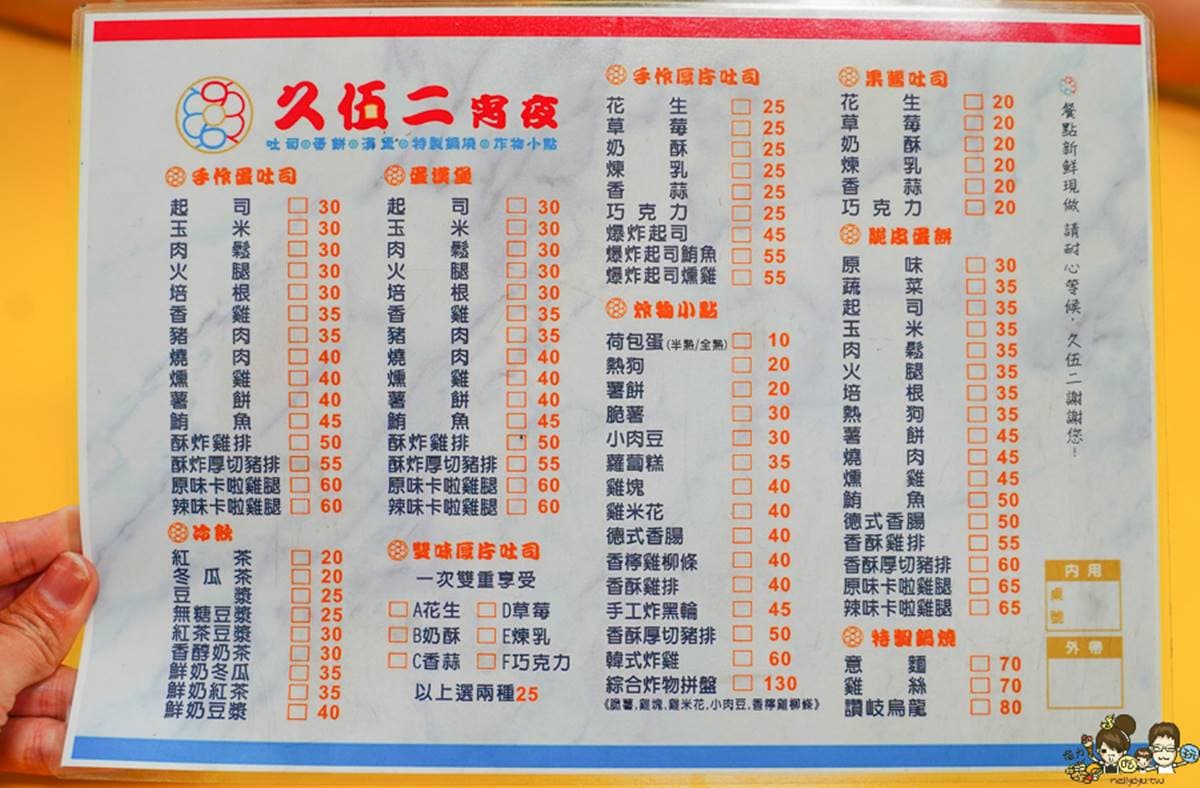 久伍二宵夜
吐司 蛋餅 漢堡 特製鍋燒 炸物小點
手作蛋吐司
起司 30
玉米 30
肉鬆 30
火腿 30
培根 30
香雞 35
豬肉 35
燒肉 40
燻雞 40
薯餅 40
鮪魚 45
酥炸雞排 50
酥炸厚切豬排 55
原味卡啦雞腿 60
辣味卡啦雞腿 60
冷飲
紅茶 20
冬瓜茶 20
豆漿 25
無糖豆漿 25
紅茶豆漿 30
香醇奶茶 30
鮮奶冬瓜 35
鮮奶紅茶 35
鮮奶豆漿 40
蛋漢堡
起司 30
玉米 30
肉鬆 30
火腿 30
培根 30
香雞 35
豬肉 35
燒肉 40
燻雞 40
薯餅 40
鮪魚 45
酥炸雞排 50
酥炸厚切豬排 55
原味卡啦雞腿 60
辣味卡啦雞腿 60
雙味厚片吐司
一次雙重享受
A花生 D草莓
B奶酥 E煉乳
C香蒜 F巧克力
以上選兩種25
手作厚片吐司
花生 25
草莓 25
奶酥 25
煉乳 25
香蒜 25
巧克力 25
爆炸起司 45
爆炸起司鮪魚 55
爆炸起司燻雞 55
炸物小點
荷包蛋(半熟/全熟) 10
熱狗 20
薯餅 20
脆薯 30
小肉豆 30
蘿蔔糕 35
雞塊 40
雞米花 40
德式香腸 40
香檸雞柳條 40
香酥雞排 40
手工炸黑輪 45
香酥厚切豬排 50
韓式炸雞 60
綜合炸物拼盤 130
《脆薯,雞塊,雞米花,小肉豆,香檸雞柳條》
果醬吐司
花生 20
草莓 20
奶酥 20
煉乳 20
香蒜 20
巧克力 20
脆皮蛋餅
原味 30
蔬菜 35
起司 35
玉米 35
肉鬆 35
火腿 35
培根 35
熱狗 35
薯餅 45
燒肉 45
燻雞 45
鮪魚 50
德式香腸 50
香酥雞排 55
香酥厚切豬排 60
原味卡啦雞腿 65
辣味卡啦雞腿 65
特製鍋燒
意麵 70
雞絲 70
讚岐烏龍 80
餐點新鮮現做 請耐心等候．久伍二謝謝您！
內用
桌號
外帶